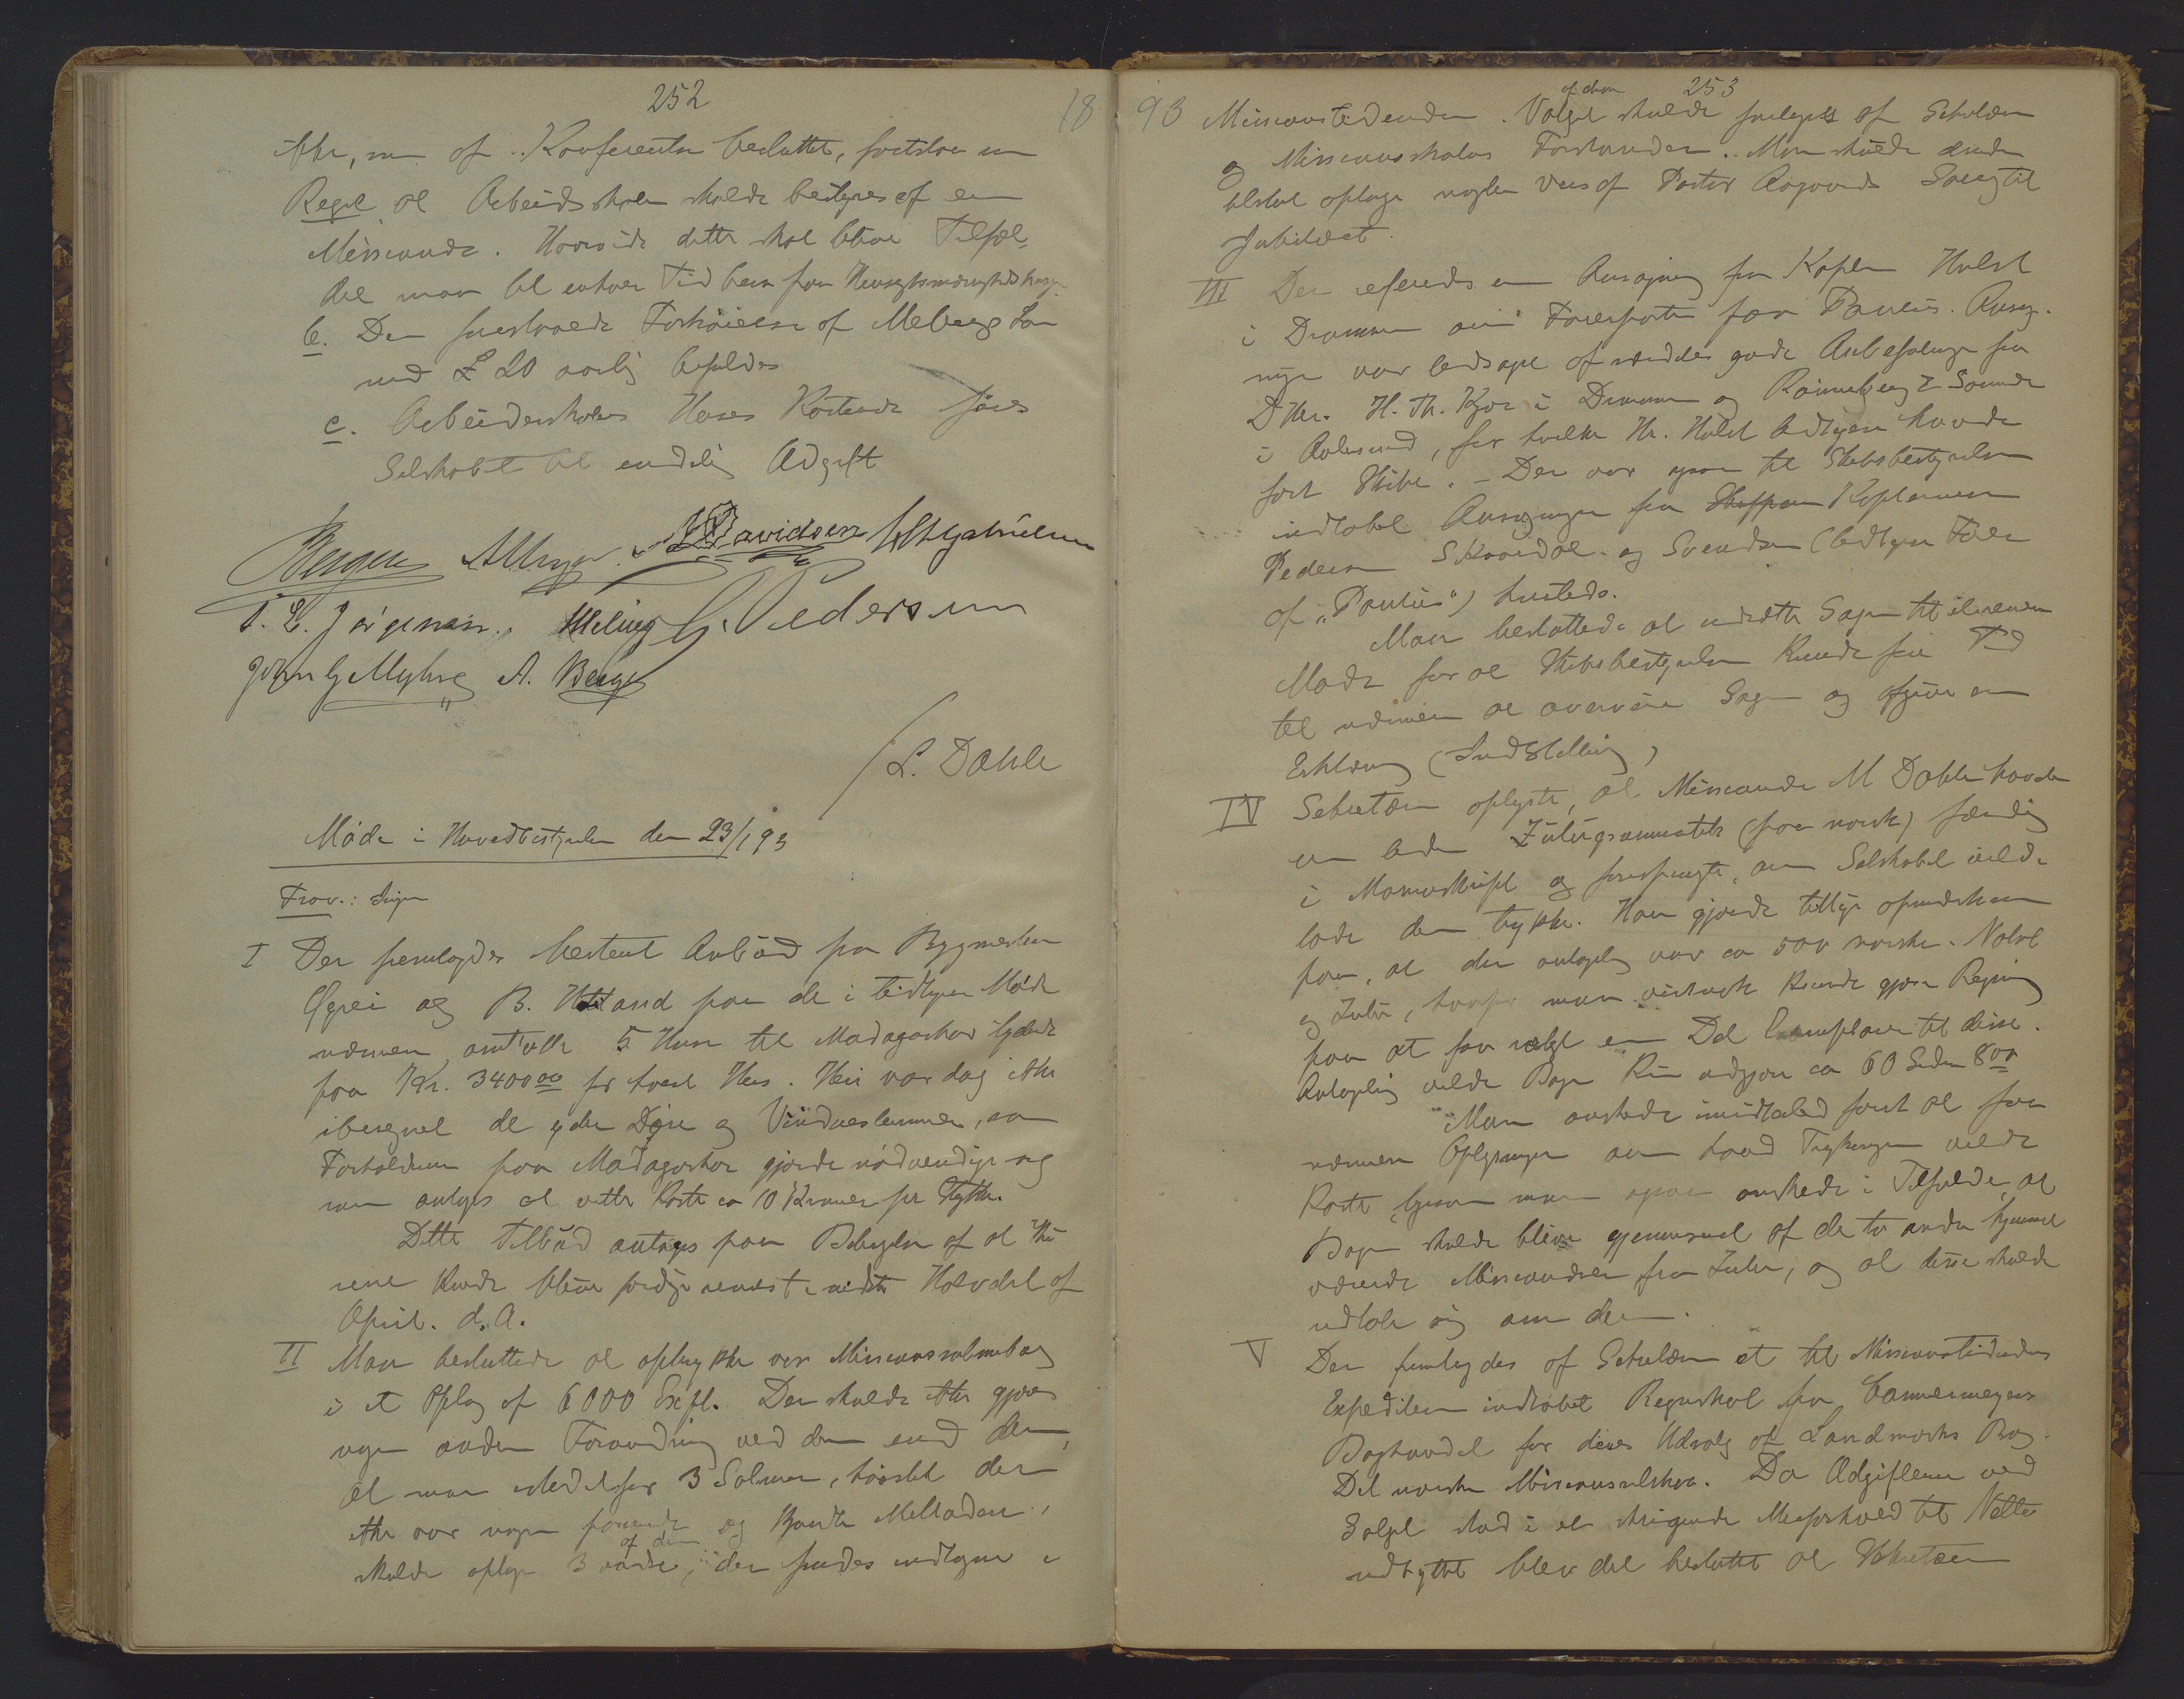 252
18
ikke, som af Konferentsen besluttet, fastslaa som
Regel at Arbeidsskolen skulde bestyres af en
Missionær. Hvorvidt dette skal blive Tilfæl-
det maa til enhver Tid bero paa Hensigtsmæssighedshensyn
b. Den foreslaaede Forhøielse af Mebergs Løn
med £ 20 aarlig bifaldes
c. Arbeiderskolens Huses Kostende føres
Selskabet til endelig Udgift
Davidsen
T. E. Jørgensen. Meling G. Pedersen
John G Myhre A. Berge
/ L. Dahle
Møde i Hovedbestyrelsen den 23/1 93
Frav.: Ingen
I Der fremlagdes bestemt Anbud fra Bygmester
og B. Høiland paa de i tidligere Møde
nævnte, omtalte 5 Huse til Madagaskar lydende
paa Kr. 3400 00 for hvert Hus. Heri var dog ikke
iberegnet de ydre Døre og Vindueslemmer, som
Forholdene paa Madagaskar gjorde nødvendige og
som antoges at ville koste ca 10 Kroner pr Stykke.
Dette Tilbud antages paa Betingelse af at Hu-
sene kunde blive færdige senest i sidste Halvdel af
April. d. A.
II Man besluttede at optrykke vor Missionssalmebog
i et Oplag af 6000 Expl. Der skulde ikke gjøres
nogen anden Forandring ved den end den,
at man istedetfor 3 Salmer, hvortil der
ikke var nogen passende og kjendte Melodier,
af dem
skulde optage 3 andre, der fandes indtagne i
93
253
af dem
Missionstidenden. Valget skulde foretages af Sekretæren
og Missionsskolens Forstander. Man skulde endnu
tilslut optage nogle Vers af Pastor Aagaards Sang til
Jubilæet.
III Der refereredes en Ansøgning fra Kaptein Hulst
i Drammen om Førerposten paa Paulus. Ansøg-
ningen var ledsaget af særdeles gode Anbefalinger fra
DHrr. H. Th. Kjør i Drammen og Rønneberg & Sønner
i Aalesund, for hvilke Hr. Hulst tidligere havde
ført Skibe. – Der var ogsaa til Skibsbestyrelsen
indløbet Ansøgninger fra Kapteinerne
Pedersen Skaardal og Svendsen (tidligere Fører
af "Paulus") hersteds.
Man besluttede at udsætte Sagen til
Møde for at Skibsbestyrelsen kunde faa Tid
til nærmere at overveie Sagen og afgive en
Erklæring (Indstilling)
IV Sekretæren oplyste, at Missionær M Dahle havde
en liden Zulugrammatik (paa norsk) færdig
i Manuskript og forespurgte, om Selskabet vilde
lade den trykke. Han gjorde tillige opmærksom
paa, at der antagelig var ca 500 norske i Natal
og Zulu, hvorfor man vistnok kunde gjøre Regning
paa at faa solgt en Del Exemplarer til disse.
Antagelig vilde Bogen kun udgjøre ca 60 Sider 8vo
Man ønskede imidlertid først at faa
nærmere Oplysninger om hvad Trykningen vilde
koste ligesom man ogsaa ønskede i Tilfælde, at
Bogen skulde blive gjennemseet af de to andre hjemme-
værende Missionærer fra Zulu, og at disse skulde
udtale sig om den.
V Der fremlagdes af Sekretæren et til Missionstidendens
Expedition indløbet Regnskab fra Cammermeyers
Boghandel for deres Udsalg af Landmarks Bog.
Det norske Missionsselskab. Da Udgifterne ved
Salget stod i et skrigende Misforhold til Netto
udbyttet blev det besluttet at Sekretæren